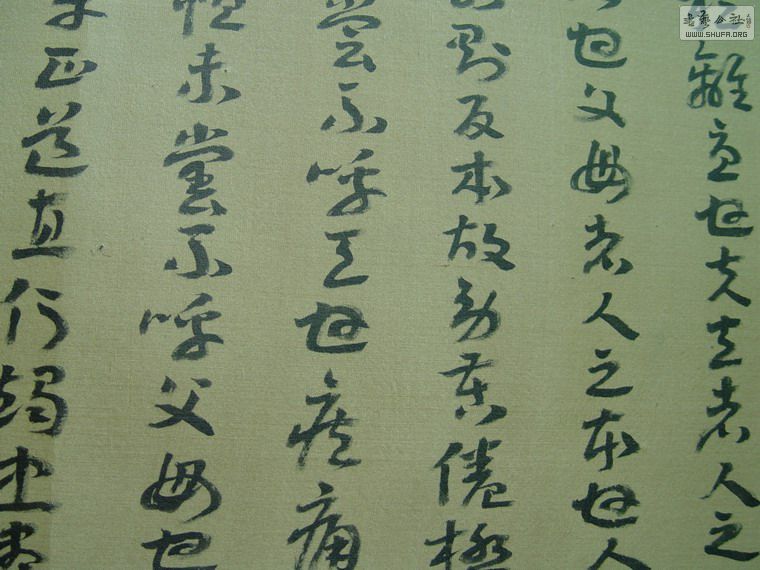 書藝公社
WWW.SHUFA.ORG
離憂也夫天者人之
也父母者人之本也人
則反本故勞苦倦極
嘗不呼天也疾痛
怛未嘗不呼父母也
平正道直行竭忠盡